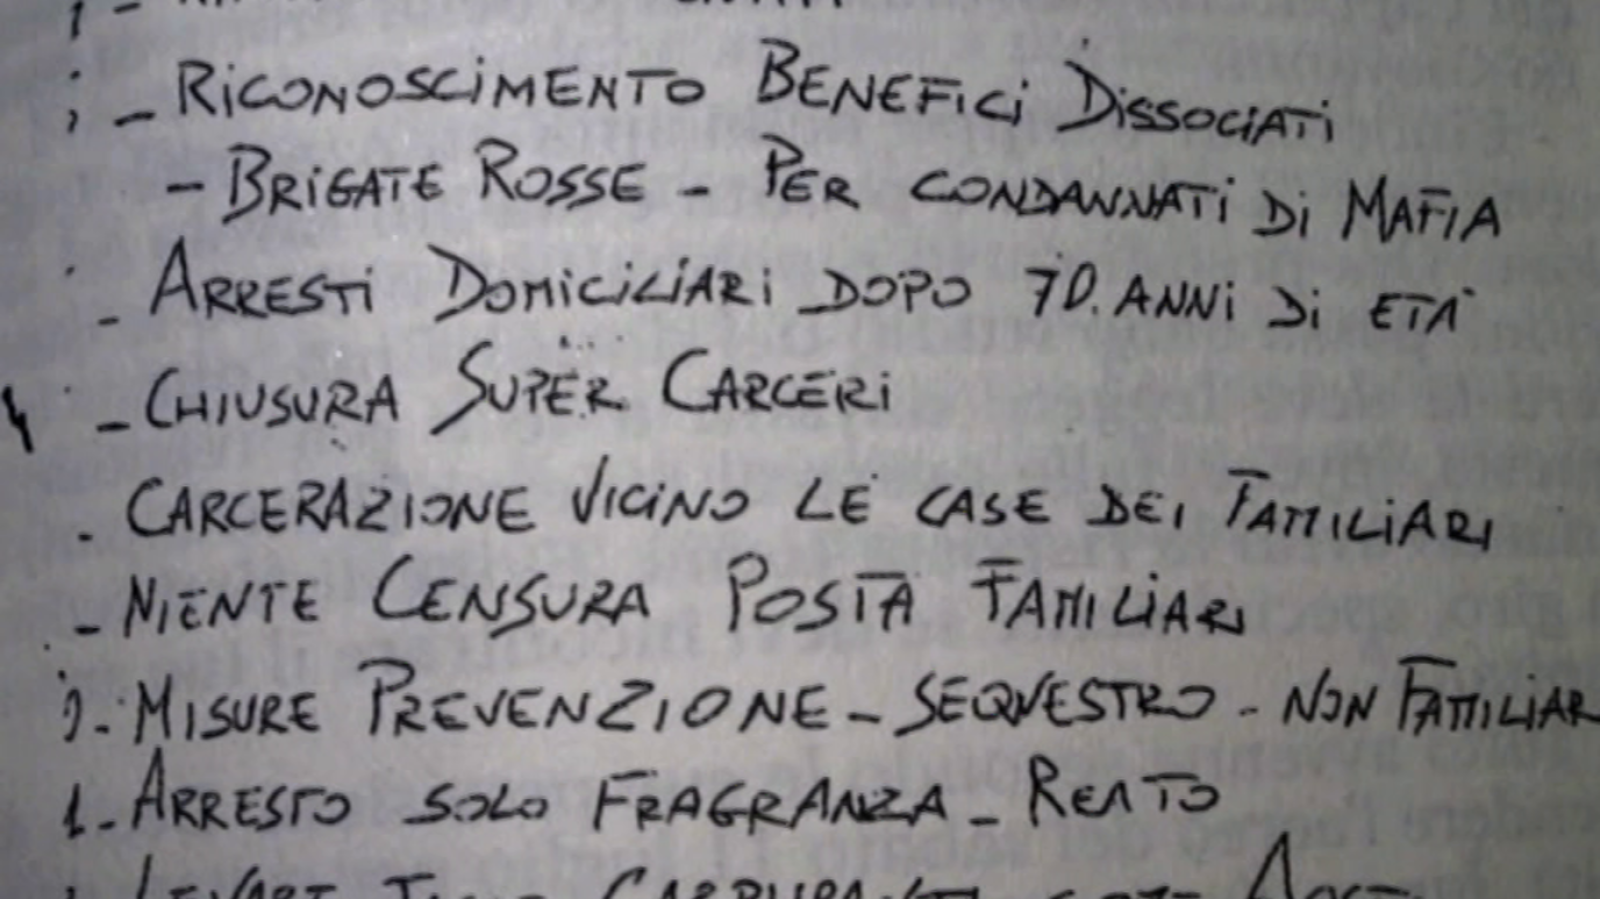 - RICONOSCIMENTO BENEFICI DISSOCIATI
- BRIGATE ROSSE - PER CONDANNATI DI MAFIA
- ARRESTI DOMICILIARI DOPO 70. ANNI DI ETÀ
- CHIUSURA SUPER CARCERI
- CARCERAZIONE VICINO LE CASE DEI FAMILIARI
- NIENTE CENSURA POSTA FAMILIARI
- MISURE PREVENZIONE - SEQUESTRO - NON FAMILIAR
- ARRESTO SOLO FRAGRANZA - REATO